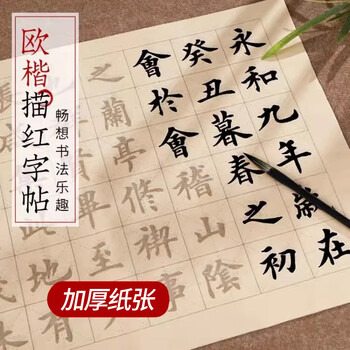 欧楷
描红字帖
畅想书法乐趣
永和九年歲在
癸丑暮春之初
會於會稽山陰
之蘭亭修禊事
畢至
地有
加厚纸张